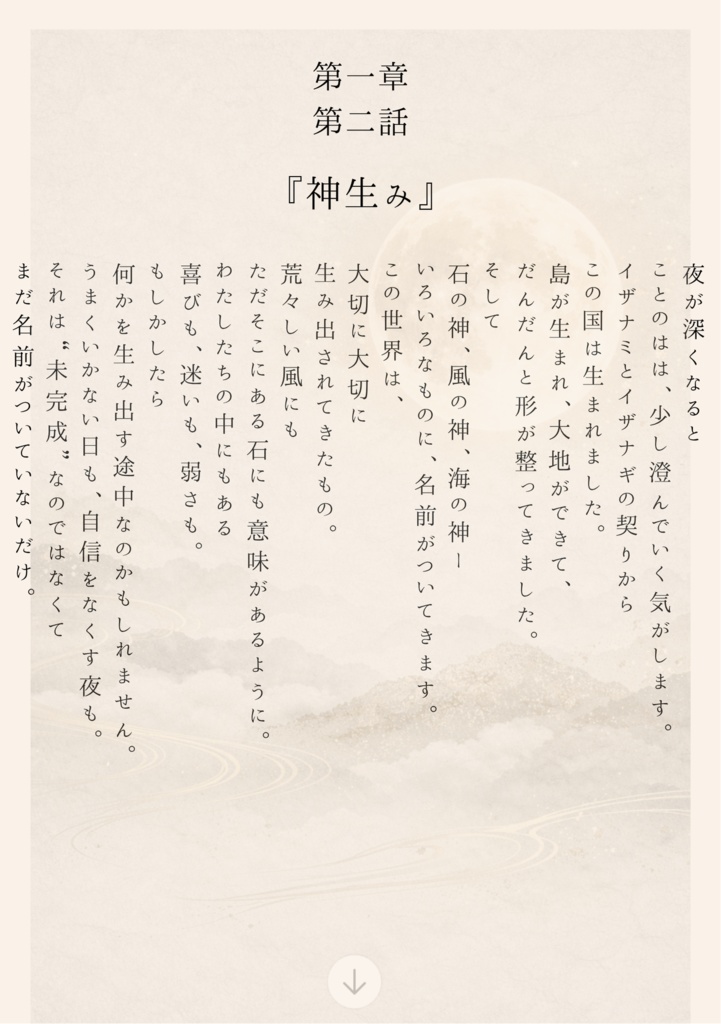 第一章
第二話
『神生み』
夜が深くなると
ことのはは、少し澄んでいく気がします。
イザナミとイザナギの契りから
この国は生まれました。
島が生まれ、大地ができて、
だんだんと形が整ってきました。
そして
石の神、風の神、海の神ー
いろいろなものに、名前がついてきます。
この世界は、
大切に大切に
生み出されてきたもの。
荒々しい風にも
ただそこにある石にも意味があるように。
わたしたちの中にもある
喜びも、迷いも、弱さも。
もしかしたら
何かを生み出す途中なのかもしれません。
うまくいかない日も、自信をなくす夜も。
それは“未完成”なのではなくて
まだ名前がついていないだけ。